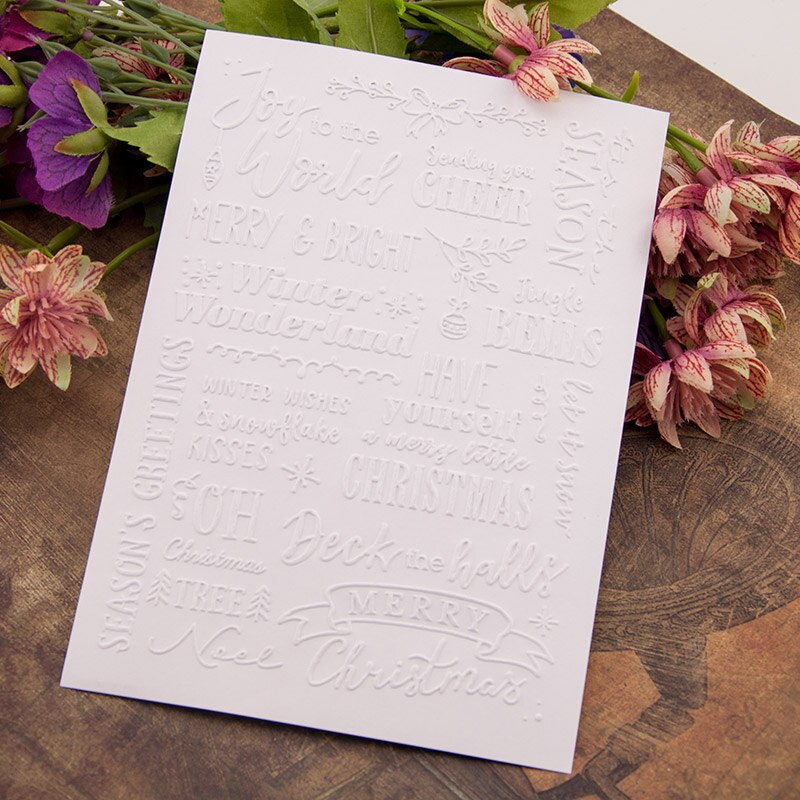 Joy
to the
World
Sending you
CHEER
'tis the
SEASON
MERRY & BRIGHT
Winter
Wonderland
Jingle
BELLS
HAVE
yourself
a merry little
CHRISTMAS
let it snow
WINTER WISHES
& snowflake
KISSES
SEASON'S GREETINGS
OH
Christmas
TREE
Deck the halls
MERRY
Christmas
Noel